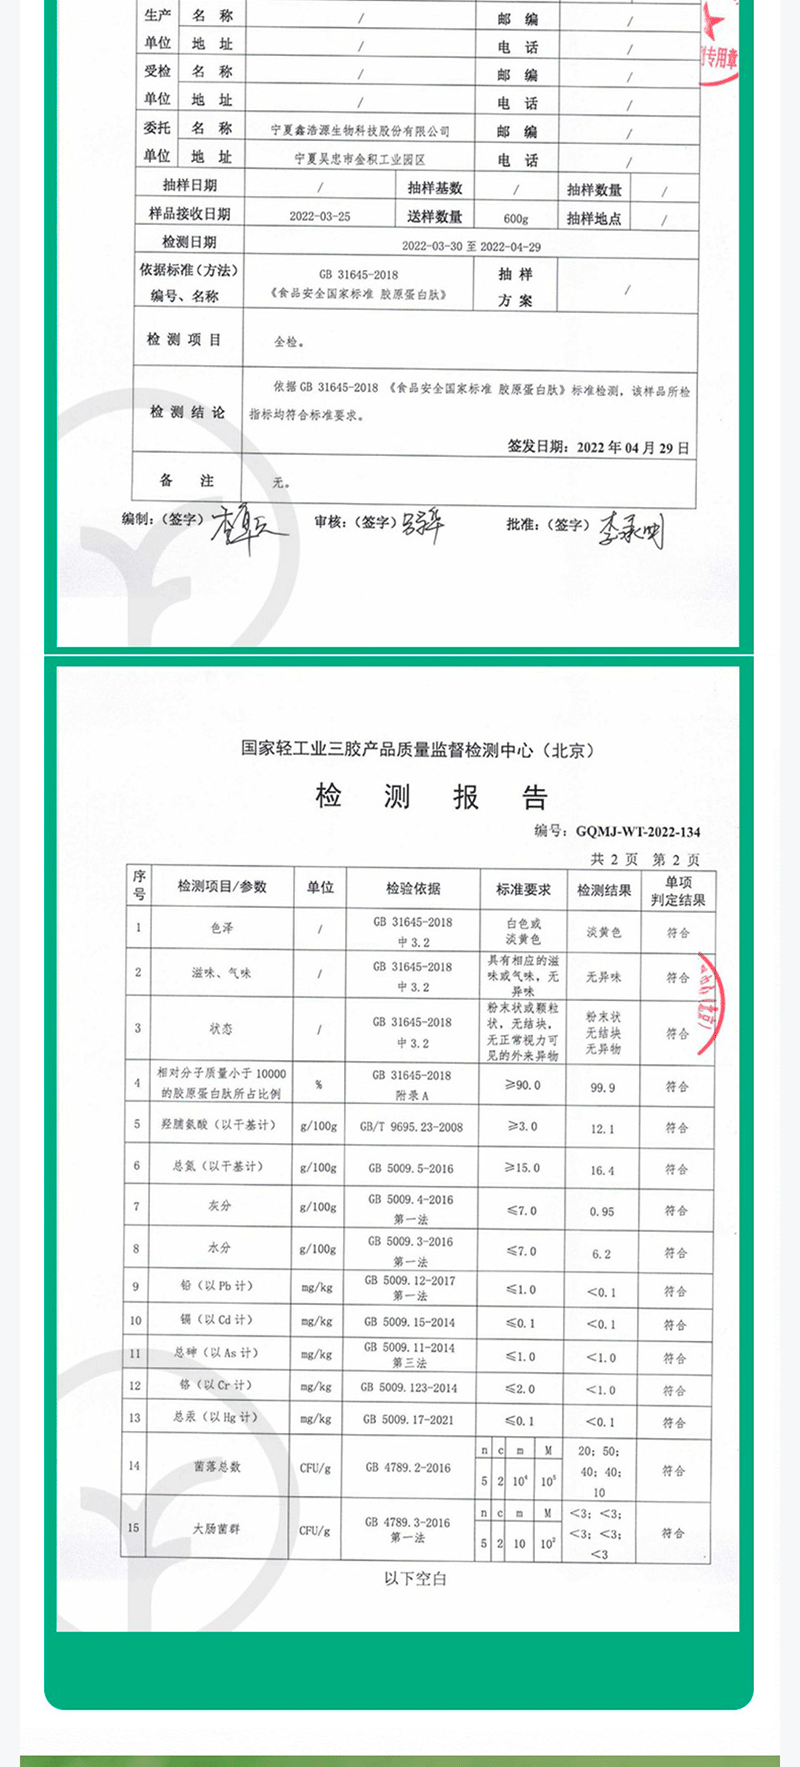 生产 名 称 / 邮 编 /
单位 地 址 / 电 话 /
受检 名 称 / 邮 编 /
单位 地 址 / 电 话 /
委托 名 称 宁夏鑫浩源生物科技股份有限公司 邮 编 /
单位 地 址 宁夏吴忠市金积工业园区 电 话 /
抽样日期 / 抽样基数 / 抽样数量 /
样品接收日期 2022-03-25 送样数量 600g 抽样地点 /
检测日期 2022-03-30 至 2022-04-29
依据标准（方法） GB 31645-2018 抽 样
编号、名称 《食品安全国家标准 胶原蛋白肽》 方 案 /
检 测 项 目 全检。
依据 GB 31645-2018 《食品安全国家标准 胶原蛋白肽》标准检测，该样品所检
检 测 结 论 指标均符合标准要求。
签发日期：2022 年 04 月 29 日
备 注 无。
编制：（签字） 审核：（签字） 批准：（签字）
专用章
国家轻工业三胶产品质量监督检测中心（北京）
检 测 报 告
编号：GQMJ-WT-2022-134
共 2 页 第 2 页
序号 检测项目/参数 单位 检验依据 标准要求 检测结果 单项判定结果
1 色泽 / GB 31645-2018 中 3.2 白色或淡黄色 淡黄色 符合
2 滋味、气味 / GB 31645-2018 中 3.2 具有相应的滋味或气味，无异味 无异味 符合
3 状态 / GB 31645-2018 中 3.2 粉末状或颗粒状，无结块，无正常视力可见的外来异物 粉末状 无结块 无异物 符合
4 相对分子质量小于 10000 的胶原蛋白肽所占比例 % GB 31645-2018 附录 A ≥90.0 99.9 符合
5 羟脯氨酸（以干基计） g/100g GB/T 9695.23-2008 ≥3.0 12.1 符合
6 总氮（以干基计） g/100g GB 5009.5-2016 ≥15.0 16.4 符合
7 灰分 g/100g GB 5009.4-2016 第一法 ≤7.0 0.95 符合
8 水分 g/100g GB 5009.3-2016 第一法 ≤7.0 6.2 符合
9 铅（以 Pb 计） mg/kg GB 5009.12-2017 第一法 ≤1.0 <0.1 符合
10 镉（以 Cd 计） mg/kg GB 5009.15-2014 ≤0.1 <0.1 符合
11 总砷（以 As 计） mg/kg GB 5009.11-2014 第三法 ≤1.0 <1.0 符合
12 铬（以 Cr 计） mg/kg GB 5009.123-2014 ≤2.0 <1.0 符合
13 总汞（以 Hg 计） mg/kg GB 5009.17-2021 ≤0.1 <0.1 符合
14 菌落总数 CFU/g GB 4789.2-2016 n c m M 5 2 10⁴ 10⁵ 20；50；40；40；10 符合
15 大肠菌群 CFU/g GB 4789.3-2016 第一法 n c m M 5 2 10 10² <3；<3；<3；<3；<3 符合
以下空白